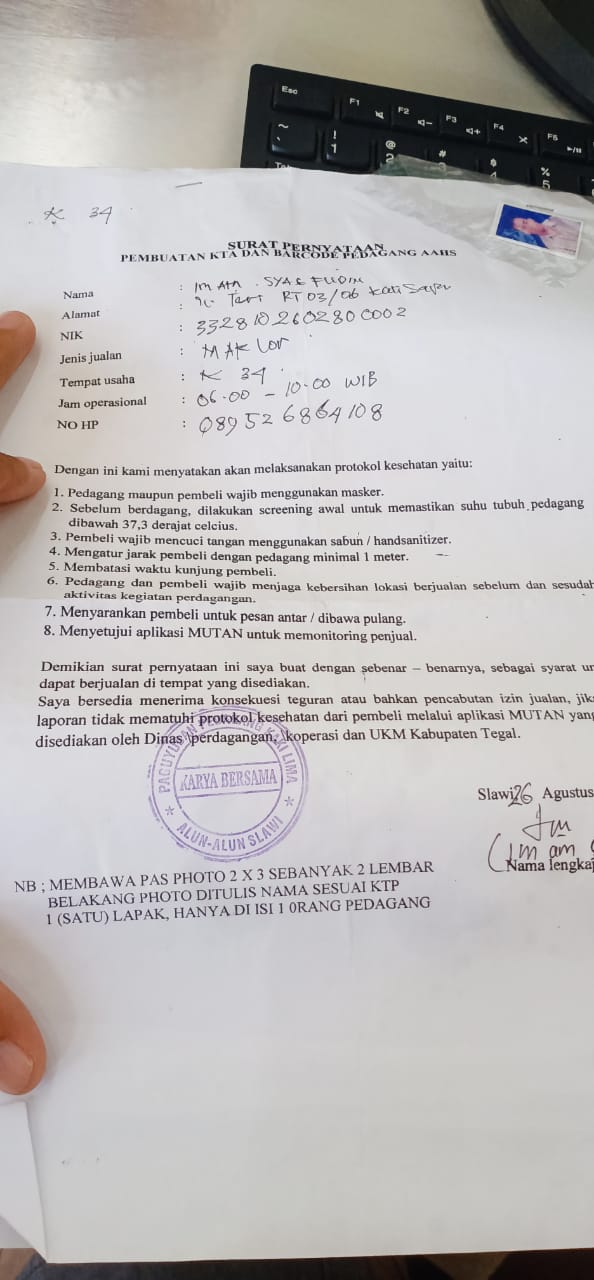 Esc F1 F2 F3 F4 F5
~ ! 1 @ 2 # $ 4 % 5
K 34
SURAT PERNYATAAN
PEMBUATAN KTA DAN BARCODE PEDAGANG AAHS
Nama : IMAM . SYAEFUDIN
Alamat : Jl. Teri RT 03/06 Kalisapu
NIK : 3328102602800002
Jenis jualan : MAKLOR
Tempat usaha : K 34
Jam operasional : 06.00 - 10.00 WIB
NO HP : 089526864108
Dengan ini kami menyatakan akan melaksanakan protokol kesehatan yaitu:
1. Pedagang maupun pembeli wajib menggunakan masker.
2. Sebelum berdagang, dilakukan screening awal untuk memastikan suhu tubuh pedagang
dibawah 37,3 derajat celcius.
3. Pembeli wajib mencuci tangan menggunakan sabun / handsanitizer.
4. Mengatur jarak pembeli dengan pedagang minimal 1 meter.
5. Membatasi waktu kunjung pembeli.
6. Pedagang dan pembeli wajib menjaga kebersihan lokasi berjualan sebelum dan sesudah
aktivitas kegiatan perdagangan.
7. Menyarankan pembeli untuk pesan antar / dibawa pulang.
8. Menyetujui aplikasi MUTAN untuk memonitoring penjual.
Demikian surat pernyataan ini saya buat dengan sebenar – benarnya, sebagai syarat un
dapat berjualan di tempat yang disediakan.
Saya bersedia menerima konsekuesi teguran atau bahkan pencabutan izin jualan, jika
laporan tidak mematuhi protokol kesehatan dari pembeli melalui aplikasi MUTAN yang
disediakan oleh Dinas perdagangan, koperasi dan UKM Kabupaten Tegal.
PAGUYUBAN PEDAGANG KAKI LIMA
KARYA BERSAMA
* ALUN-ALUN SLAWI *
Slawi 26 Agustus
(Imam
Nama lengkap
NB ; MEMBAWA PAS PHOTO 2 X 3 SEBANYAK 2 LEMBAR
BELAKANG PHOTO DITULIS NAMA SESUAI KTP
1 (SATU) LAPAK, HANYA DI ISI 1 0RANG PEDAGANG